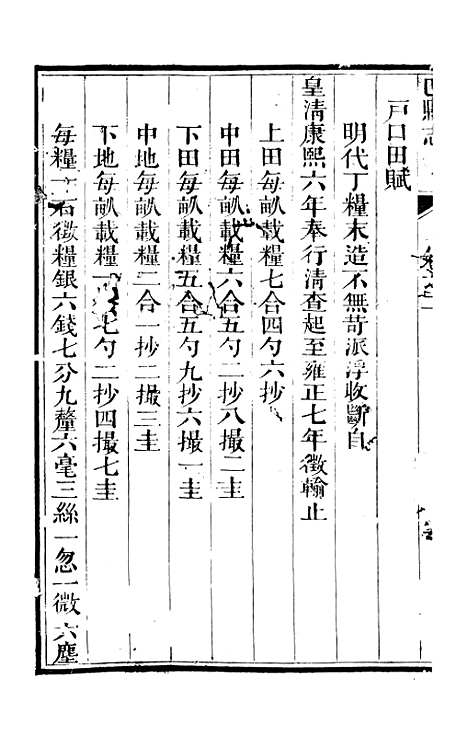 巴縣志
戶口田賦
明代丁糧末造不無苛派浮收斷自
皇清康熙六年奉行清查起至雍正七年徵輸止
上田每畝載糧七合四勺六抄
中田每畝載糧六合五勺二抄八撮二圭
下田每畝載糧五合五勺九抄六撮一圭
中地每畝載糧二合一抄二撮三圭
下地每畝載糧一七勺二抄四撮七圭
每糧一石徵糧銀六錢七分九釐六毫三絲一忽一微六塵